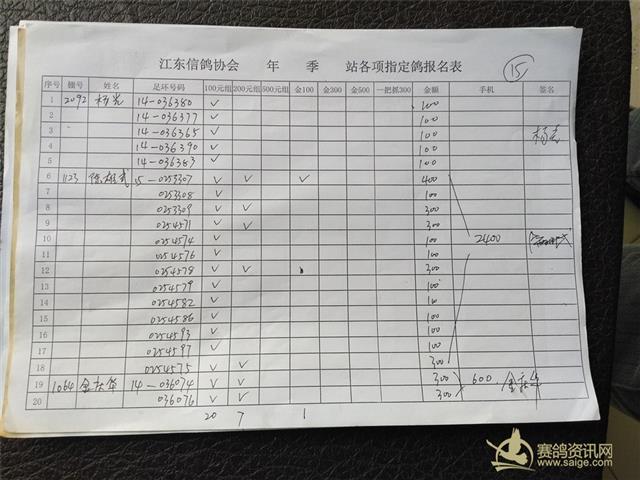 江东信鸽协会 年 季 站各项指定鸽报名表 15
序号 棚号 姓名 足环号码 100元组 200元组 500元组 金100 金300 金500 一把抓300 金额 手机 签名
1 2092 杨光 14-036380 ✓ 100
2 14-036377 ✓ 100
3 14-036365 ✓ 100 杨光
4 14-036390 ✓ 100
5 14-036383 ✓ 100
6 1123 陈雄武 15-0253307 ✓ ✓ ✓ 400
7 0253308 ✓ 100
8 0253309 ✓ ✓ 300
9 0254571 ✓ ✓ 300
10 0254574 ✓ 100 2400
11 0254576 ✓ 100
12 0254578 ✓ ✓ 300
13 0254579 ✓ 100
14 0254582 ✓ 100
15 0254586 ✓ 100
16 0254593 ✓ 100
17 0254597 ✓ 100
18 0254575 ✓ ✓ 300
19 1064 金庆华 14-036074 ✓ ✓ 300 600 金庆华
20 036076 ✓ ✓ 300
20 7 1
赛鸽资讯网
www.saige.com